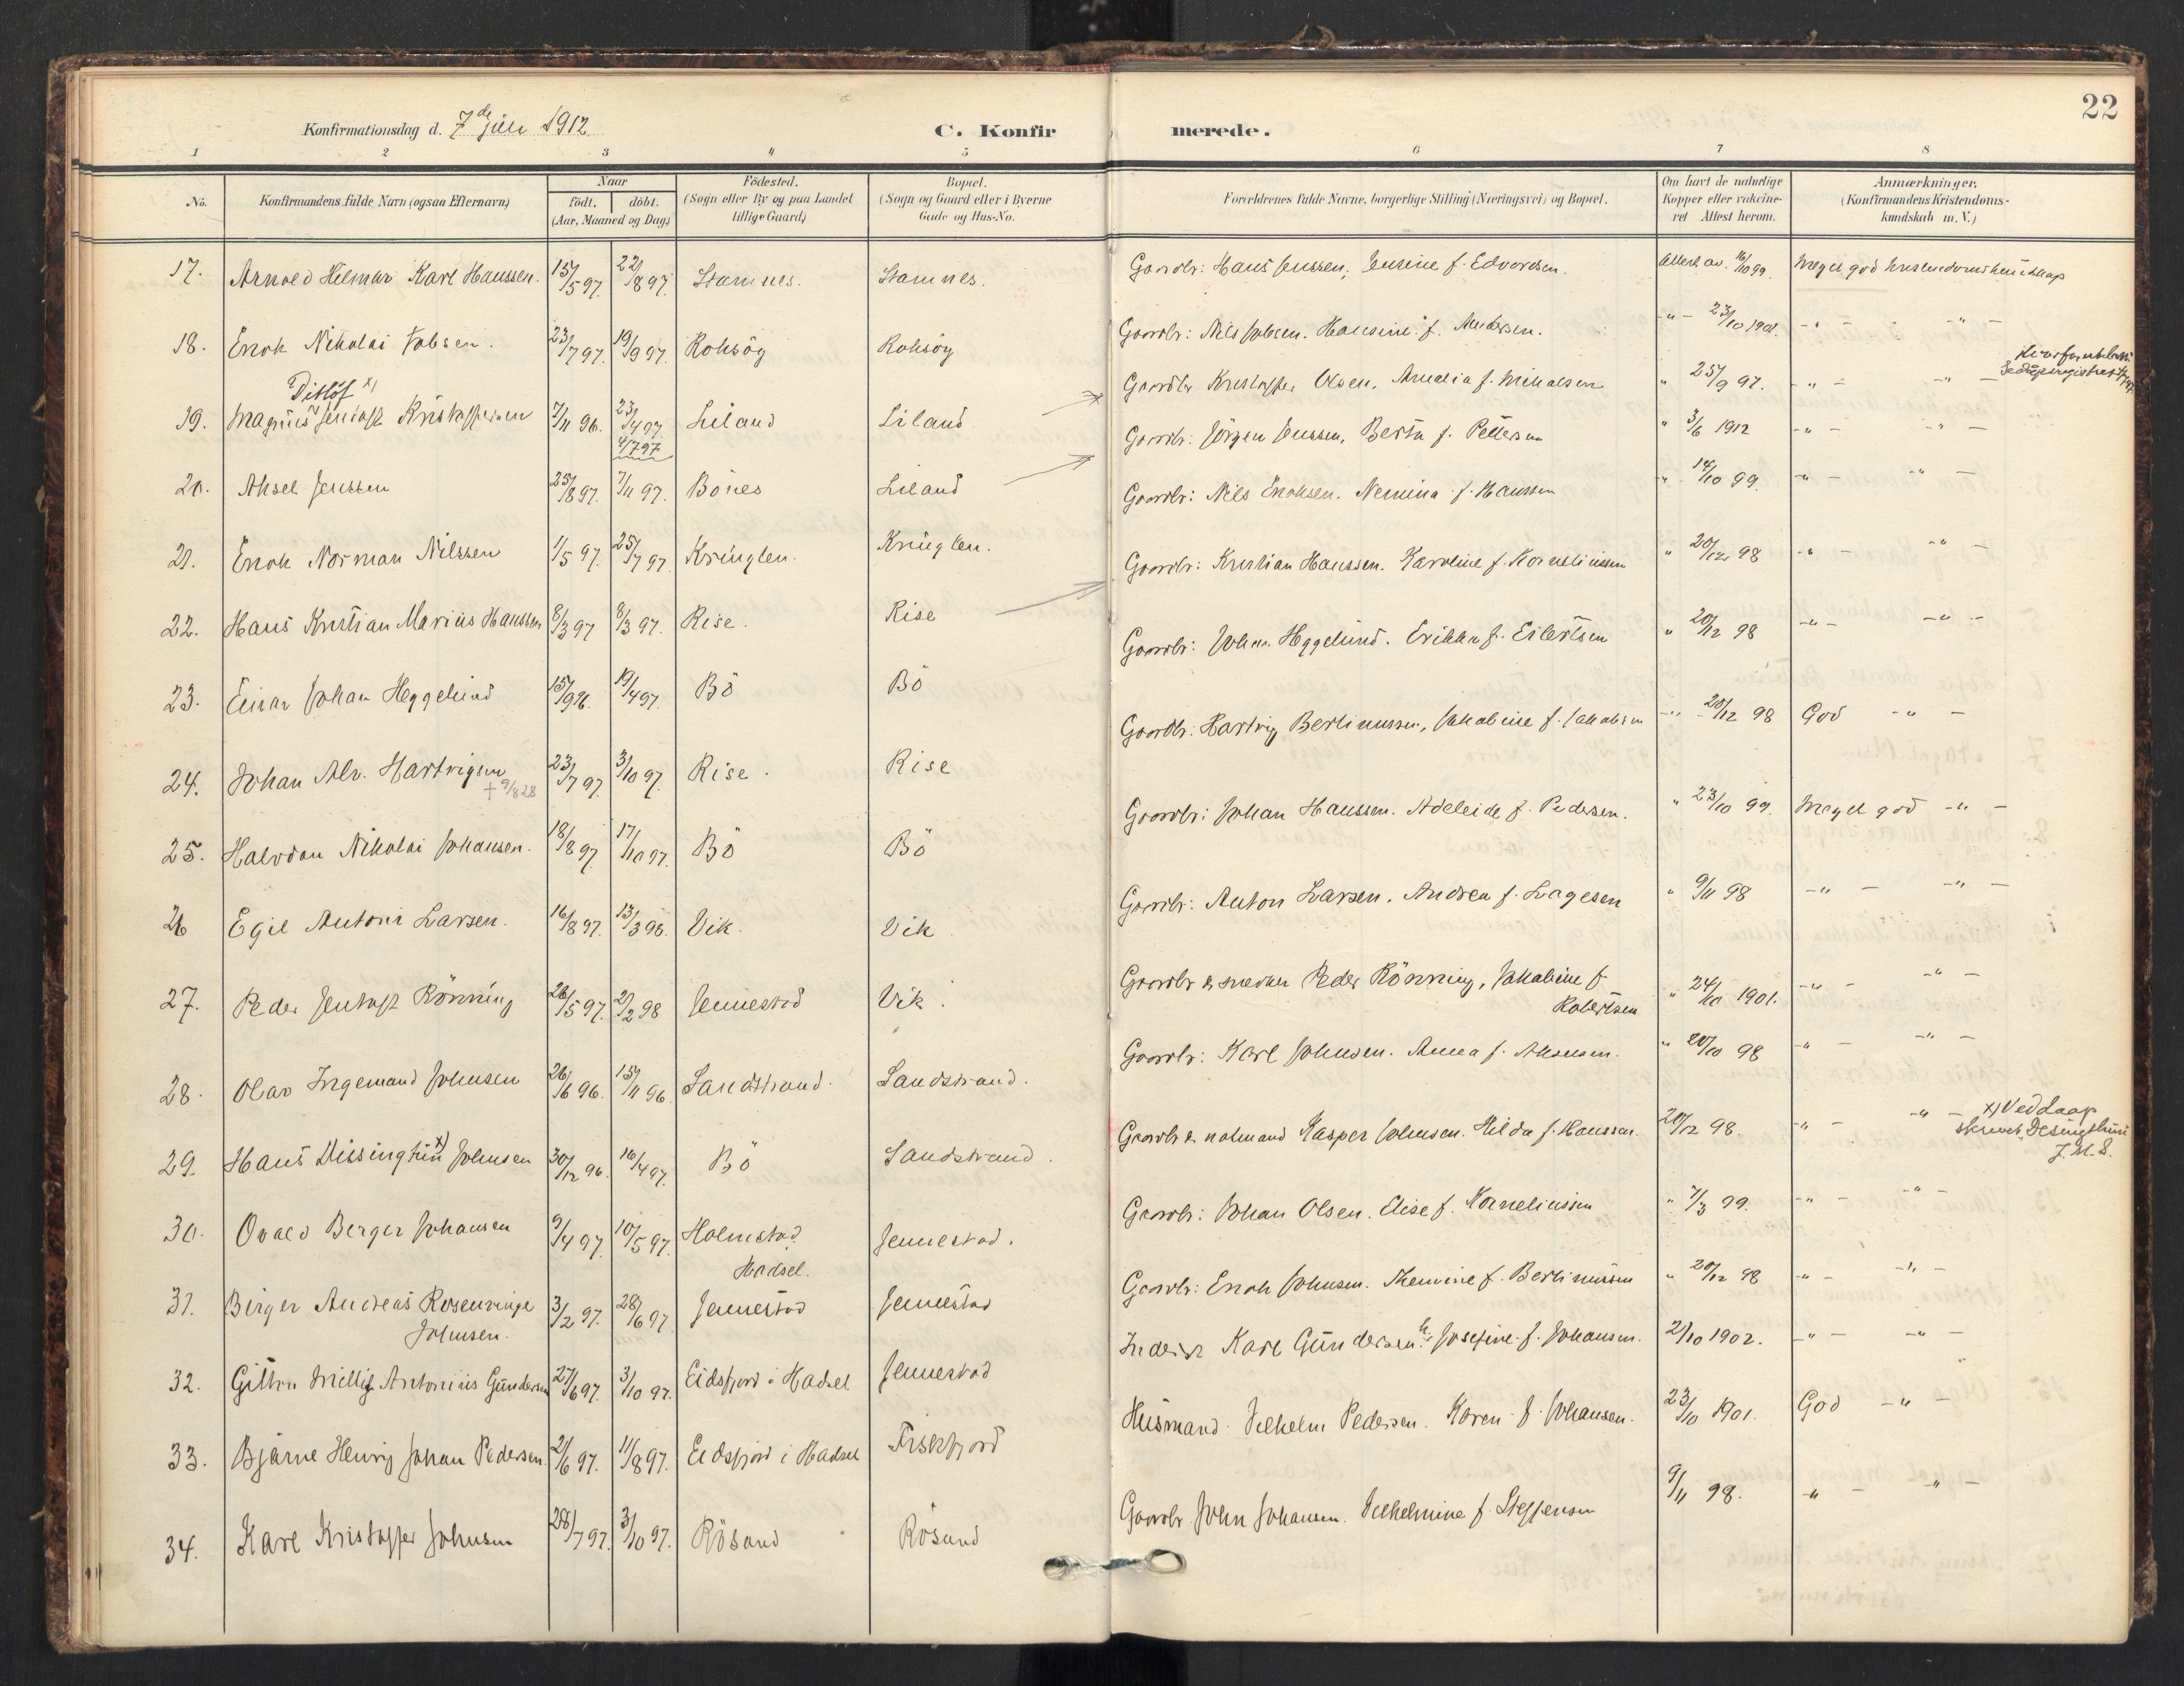 22
Konfirmationsdag d. 7de juli 1912.
C. Konfirmerede.
1 2 3 4 5 6 7 8
No.
Konfirmandens fulde Navn (ogsaa Efternavn)
Naar
födt. döbt.
(Aar, Maaned og Dag)
Födested.
(Sogn eller By og paa Landet tillige Gaard)
Bopæl.
(Sogn og Gaard eller i Byerne Gade og Hus-No.
Forældrenes fulde Navne, borgerlige Stilling (Næringsvei) og Bopæl.
Om havt de naturlige Kopper eller vaccineret Attest herom.
Anmærkninger,
(Konfirmandens Kristendomskundskab m. V.)
17. Arnold Hilmar Karl Hanssen. 15/5 97. 22/8 97. Stamnes. Stamnes. Gaardbr: Hans Jenssen, Jensine f. Edvardsen. Attest av. 16/10 99. Meget god kristendomskundskap
18. Enok Nikolai Jobsen. 23/7 97. 19/9 97. Roksöy Roksöy Gaardbr: Nils Jobsen. Hansine f. Andersen. -"- 23/10 1901. -"- -"-
Ditlöf x)
19. Magnus Jentoft Kristoffersen 7/11 96. 23/4 97 Liland Liland Gaardbr Kristoffer Olsen, Amalia f. Mikalsen " 25/9 97. -"- -"-
4/7 97
20. Aksel Jenssen 25/8 97. 7/11 97. Bönes Liland Gaardbr: Jörgen Jenssen, Berta f. Pettersen " 3/6 1912 -"- -"-
21. Enok Norman Nilssen 1/5 97. 25/7 97 Kringlen. Kringlen. Gaardbr: Nils Enoksen. f. Hanssen " 14/10 99. -"- -"-
22. Hans Kristian Marius Hanssen 8/3 97 8/3 97. Rise. Rise Gaardbr: Kristian Hanssen. Karoline f. Korneliussen " 20/12 98 -"- -"-
23. Einar Johan Heggelund 15/9 96. 19/4 97. Bö Bö Gaardbr: Johan Heggelund. Erikka f. Eilertsen " 20/12 98 -"- -"-
24. Johan Alv. Hartvigsen 23/7 97. 3/10 97. Rise. Rise Gaardbr. Hartvig Bertinussen, Jakobine f. Jakobsen -"- 20/12 98 God -"-
† 9/8 28
25. Halvdan Nikolai Johansen. 18/8 97 17/10 97. Bö Bö Gaardbr: Johan Hanssen. Adeleide f. Pedersen. " 23/10 99. Meget god -"-
26 Egil Antoni Larsen. 16/8 97. 13/3 98. Vik. Vik. Gaardbr: Anton Larsen. Andrea f. Lagesen " 9/11 98 -"- -"-
27. Peder Jentoft Rönning 26/5 97. 2/2 98 Jennestad Vik. Gaardbr & snedker Peder Rönning, Jakobine f. Robertsen " 24/10 1901. -"- -"-
28. Olav Ingemand Johnsen 26/6 96. 15/11 96 Sandstrand. Sandstrand. Gaardbr: Karl Johnsen. Anna f. Aksensen. " 20/10 98 -"- -"-
29. Hans Dissingtun x) Johnsen 30/12 96. 16/4 97. Bö Sandstrand. Gaardbr & notmand Kasper Johnsen. Hilda f. Hanssen. 20/12 98. -"- -"- x) Ved Daap skrevet Desingthun
J.M.S.
30. Ovald Berger Johansen 9/4 97. 10/5 97. Holmstad Hadsel. Jennestad. Gaardbr: Johan Olsen. Elise f. Korneliussen " 7/3 99. -"- -"-
31. Birger Andreas Rosenvinge Johnsen. 3/2 97. 28/6 97. Jennestad Jennestad Gaardbr: Enok Johnsen. f. Bertinussen " 20/12 98 -"- -"-
32. Antonius Gundersen 27/6 97. 3/10 97. Eidsfjord i Hadsel Jennestad Inderst Karl Gundersen. h. Josefine f. Johansen. 2/10 1902. -"- -"-
33. Bjarne Henrij Johan Pedersen. 2/6 97. 11/8 97. Eidsfjord i Hadsel Fiskfjord Husmand. Vilhelm Pedersen. Karen f. Johansen. 23/10 1901. God -"-
34. Karl Kristoffer Johnsen 28/7 97. 3/10 97. Rösand Rösand Gaardbr John Johansen. Vilhelmine f. Steffensen 9/11 98. -"- -"-